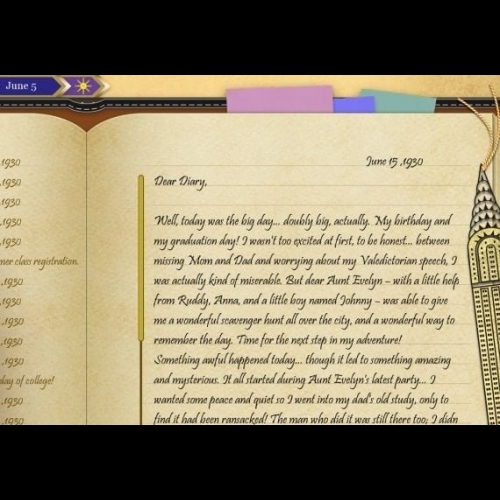 June 5
,1930
,1930
,1930
,1930
,1930
mer class registration.
,1930
,1930
,1930
,1930
,1930
day of college!
,1930
,1930
June 15 ,1930
Dear Diary,
Well, today was the big day... doubly big, actually. My birthday and
my graduation day! I wasn't too excited at first, to be honest... between
missing Mom and Dad and worrying about my Valedictorian speech, I
was actually kind of miserable. But dear Aunt Evelyn – with a little help
from Ruddy, Anna, and a little boy named Johnny – was able to give
me a wonderful scavenger hunt all over the city, and a wonderful way to
remember the day. Time for the next step in my adventure!
Something awful happened today... though it led to something amazing
and mysterious. It all started during Aunt Evelyn's latest party... I
wanted some peace and quiet so I went into my dad's old study, only to
find it had been ransacked! The man who did it was still there too; I didn